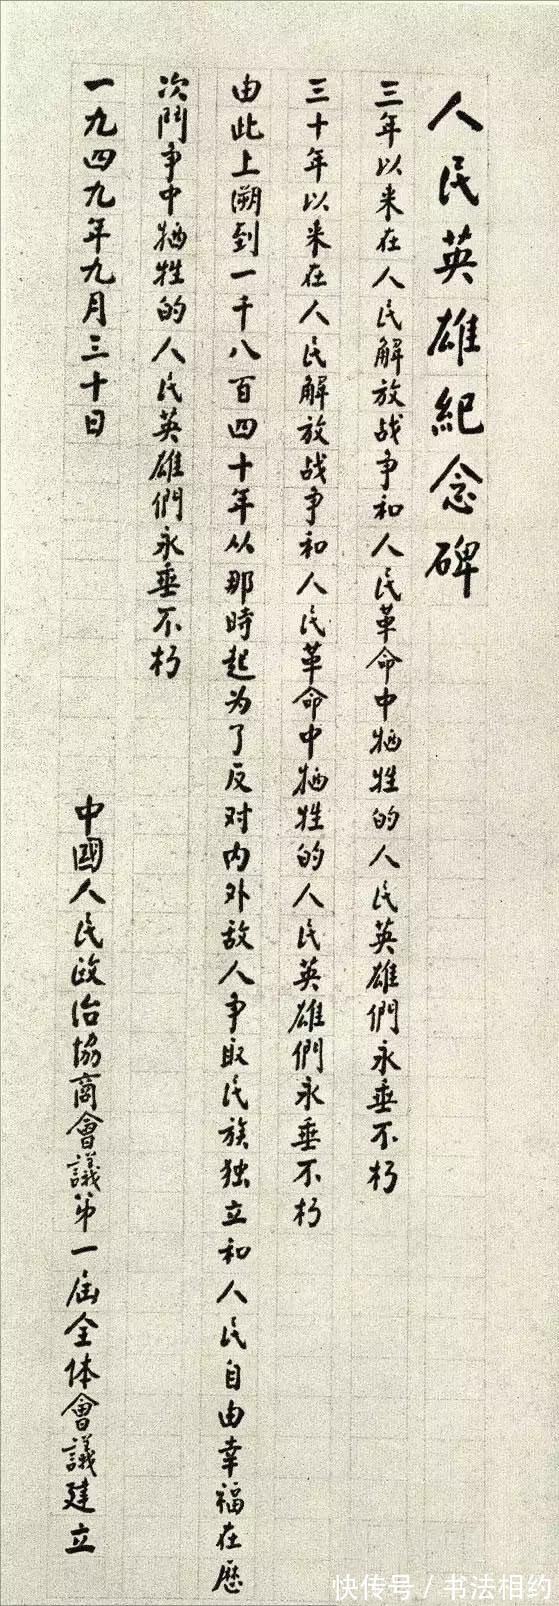 人民英雄紀念碑
三年以来在人民解放战争和人民革命中牺牲的人民英雄們永垂不朽
三十年以来在人民解放战争和人民革命中牺牲的人民英雄們永垂不朽
由此上溯到一千八百四十年从那時起为了反对内外敌人争取民族独立和人民自由幸福在歷
次鬥争中牺牲的人民英雄們永垂不朽
一九四九年九月三十日
中國人民政治協商會議第一届全体會議建立
快传号 / 书法相约